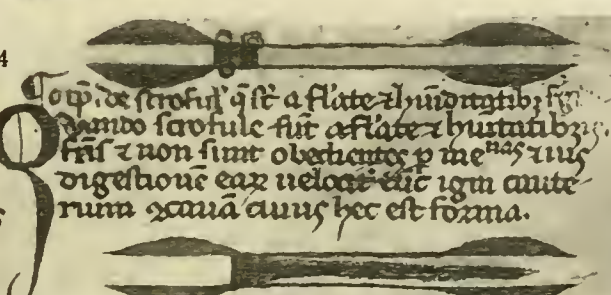 4
de scroful' q̄ st̄ a flāte ⁊ hūiditatibꝫ
Quando scrofule fūt a flāte ⁊ huītatibꝫ
frīs ⁊ non sunt obedientes p me^nas ⁊ uis
digestionē eaꝝ uelocit' tūc igni caute
rium ꝯcauā cuiuꝰ hec est forma.